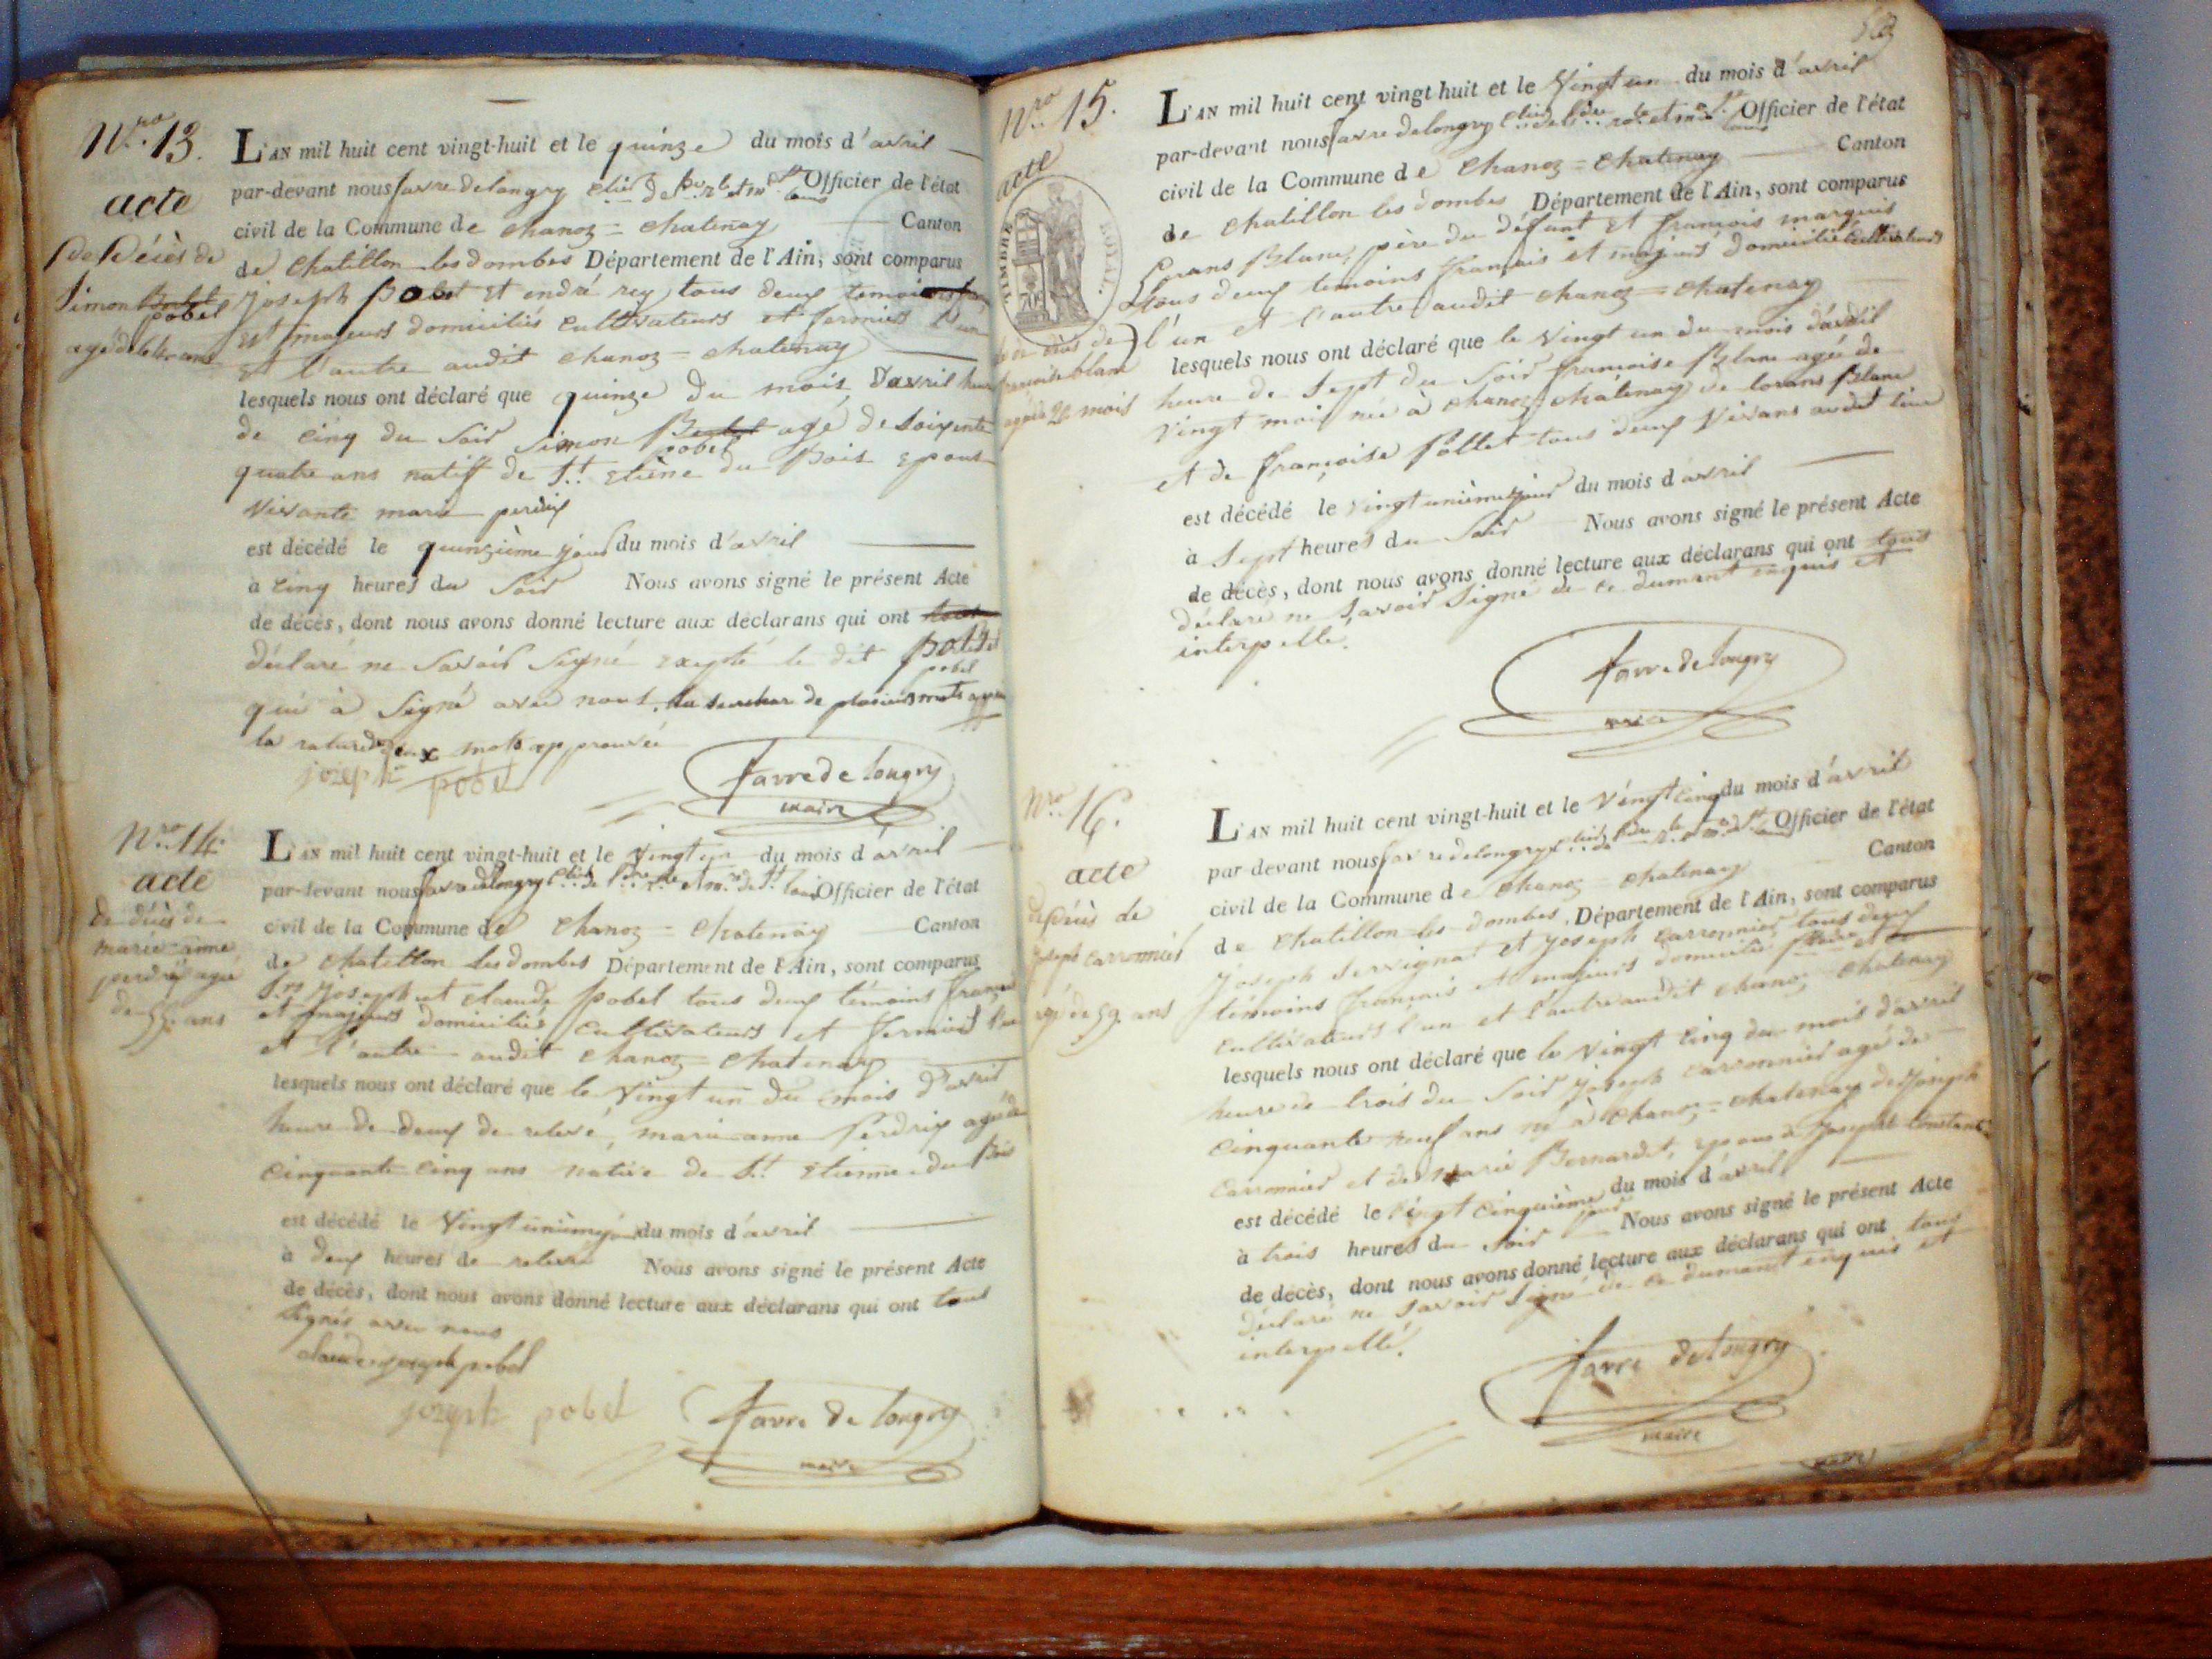 Nro. 13.
acte
de Décès de
Simon
pobel
agé de 64 ans
L'AN mil huit cent vingt-huit et le quinze du mois d'avril
par-devant nous favre delongry Officier de l'état
civil de la Commune de Chanoz = Chatenay Canton
de Chatillon les dombes Département de l'Ain, sont comparus
Joseph pobel et andré rey tous deux temoins
Et majeurs domiciliés Cultivateurs et fermiers l'un
Et l'autre audit Chanoz = Chatenay
lesquels nous ont déclaré que quinze du mois d'avril heure
de cinq du soir Simon pobel agé de Soixente
quatre ans natif de St. Etiène du Bois Epoux
vivante marie perdrix
est décédé le quinzième jour du mois d'avril
à cinq heures du Soir Nous avons signé le présent Acte
de décès, dont nous avons donné lecture aux déclarans qui ont
déclaré ne Savoir Signé excepté le dit pobel
qui à Signé avec nous. la surchar de plusieurs mots
la rature deux mots approuvée
jozeph pobel
favre de longry
maire
Nro. 14.
acte
de décès de
marie anne
perdrix agée
de 55 ans
L'AN mil huit cent vingt-huit et le Vingt un du mois d'avril
par-devant nous favre delongry Officier de l'état
civil de la Commune de Chanoz = Chatenay Canton
de Chatillon les dombes Département de l'Ain, sont comparus
Joseph et claude pobel tous deux témoins français
et majeurs domiciliés Cultivateurs et fermiers l'un
et l'autre audit Chanoz = Chatenay
lesquels nous ont déclaré que le Vingt un du mois d'avril
heure de deux de relevé, marie anne Perdrix agée de
cinquante cinq ans native de St. Etienne du Bois
est décédé le Vingt unième jour du mois d'avril
à deux heures de relevé Nous avons signé le présent Acte
de décès, dont nous avons donné lecture aux déclarans qui ont tous
signés avec nous
claude joseph pobel
jozeph pobel
favre de longry
maire
Nro. 15.
acte
TIMBRE ROYAL
de décès de
françoise blanc
agée de 20 mois
L'AN mil huit cent vingt-huit et le Vingt un du mois d'avril
par-devant nous favre delongry Officier de l'état
civil de la Commune de Chanoz = Chatenay Canton
de Chatillon les dombes Département de l'Ain, sont comparus
Lorans Blanc, père du défunt Et françois marquis
tous deux temoins français et majeurs domiciliés Cultivateurs
l'un et l'autre audit Chanoz = Chatenay
lesquels nous ont déclaré que le Vingt un du mois d'avril
heure de Sept du Soir françoise Blanc agée de
Vingt mois née à Chanoz Chatenay de lorans Blanc
et de françoise Pollet tous deux Vivans audit lieu
est décédé le vingt unième jour du mois d'avril
à Sept heures du Soir Nous avons signé le présent Acte
de décès, dont nous avons donné lecture aux déclarans qui ont tous
déclaré ne Savoir Signé de ce dument enquis et
interpellé.
favre de longry
maire
Nro. 16.
acte
de Décès de
Joseph Carronnier
agé de 59 ans
L'AN mil huit cent vingt-huit et le Vingt cinq du mois d'avril
par-devant nous favre delongry Officier de l'état
civil de la Commune de Chanoz Chatenay Canton
de Chatillon les dombes. Département de l'Ain, sont comparus
Joseph Servignat et Joseph Carronnier tous deux
témoins français et majeurs domiciliés
Cultivateurs l'un et l'autre audit Chanoz Chatenay
lesquels nous ont déclaré que le Vingt cinq du mois d'avril
heure de trois du Soir Joseph Carronnier agé de
Cinquante neuf ans né à Chanoz = Chatenay de Joseph
Carronnier et de Marie Bernardet, Epoux à
est décédé le vingt cinquième jour du mois d'avril
à trois heures du Soir Nous avons signé le présent Acte
de décès, dont nous avons donné lecture aux déclarans qui ont tous
déclaré ne Savoir Signé de ce dument enquis et
interpellé.
favre de longry
maire